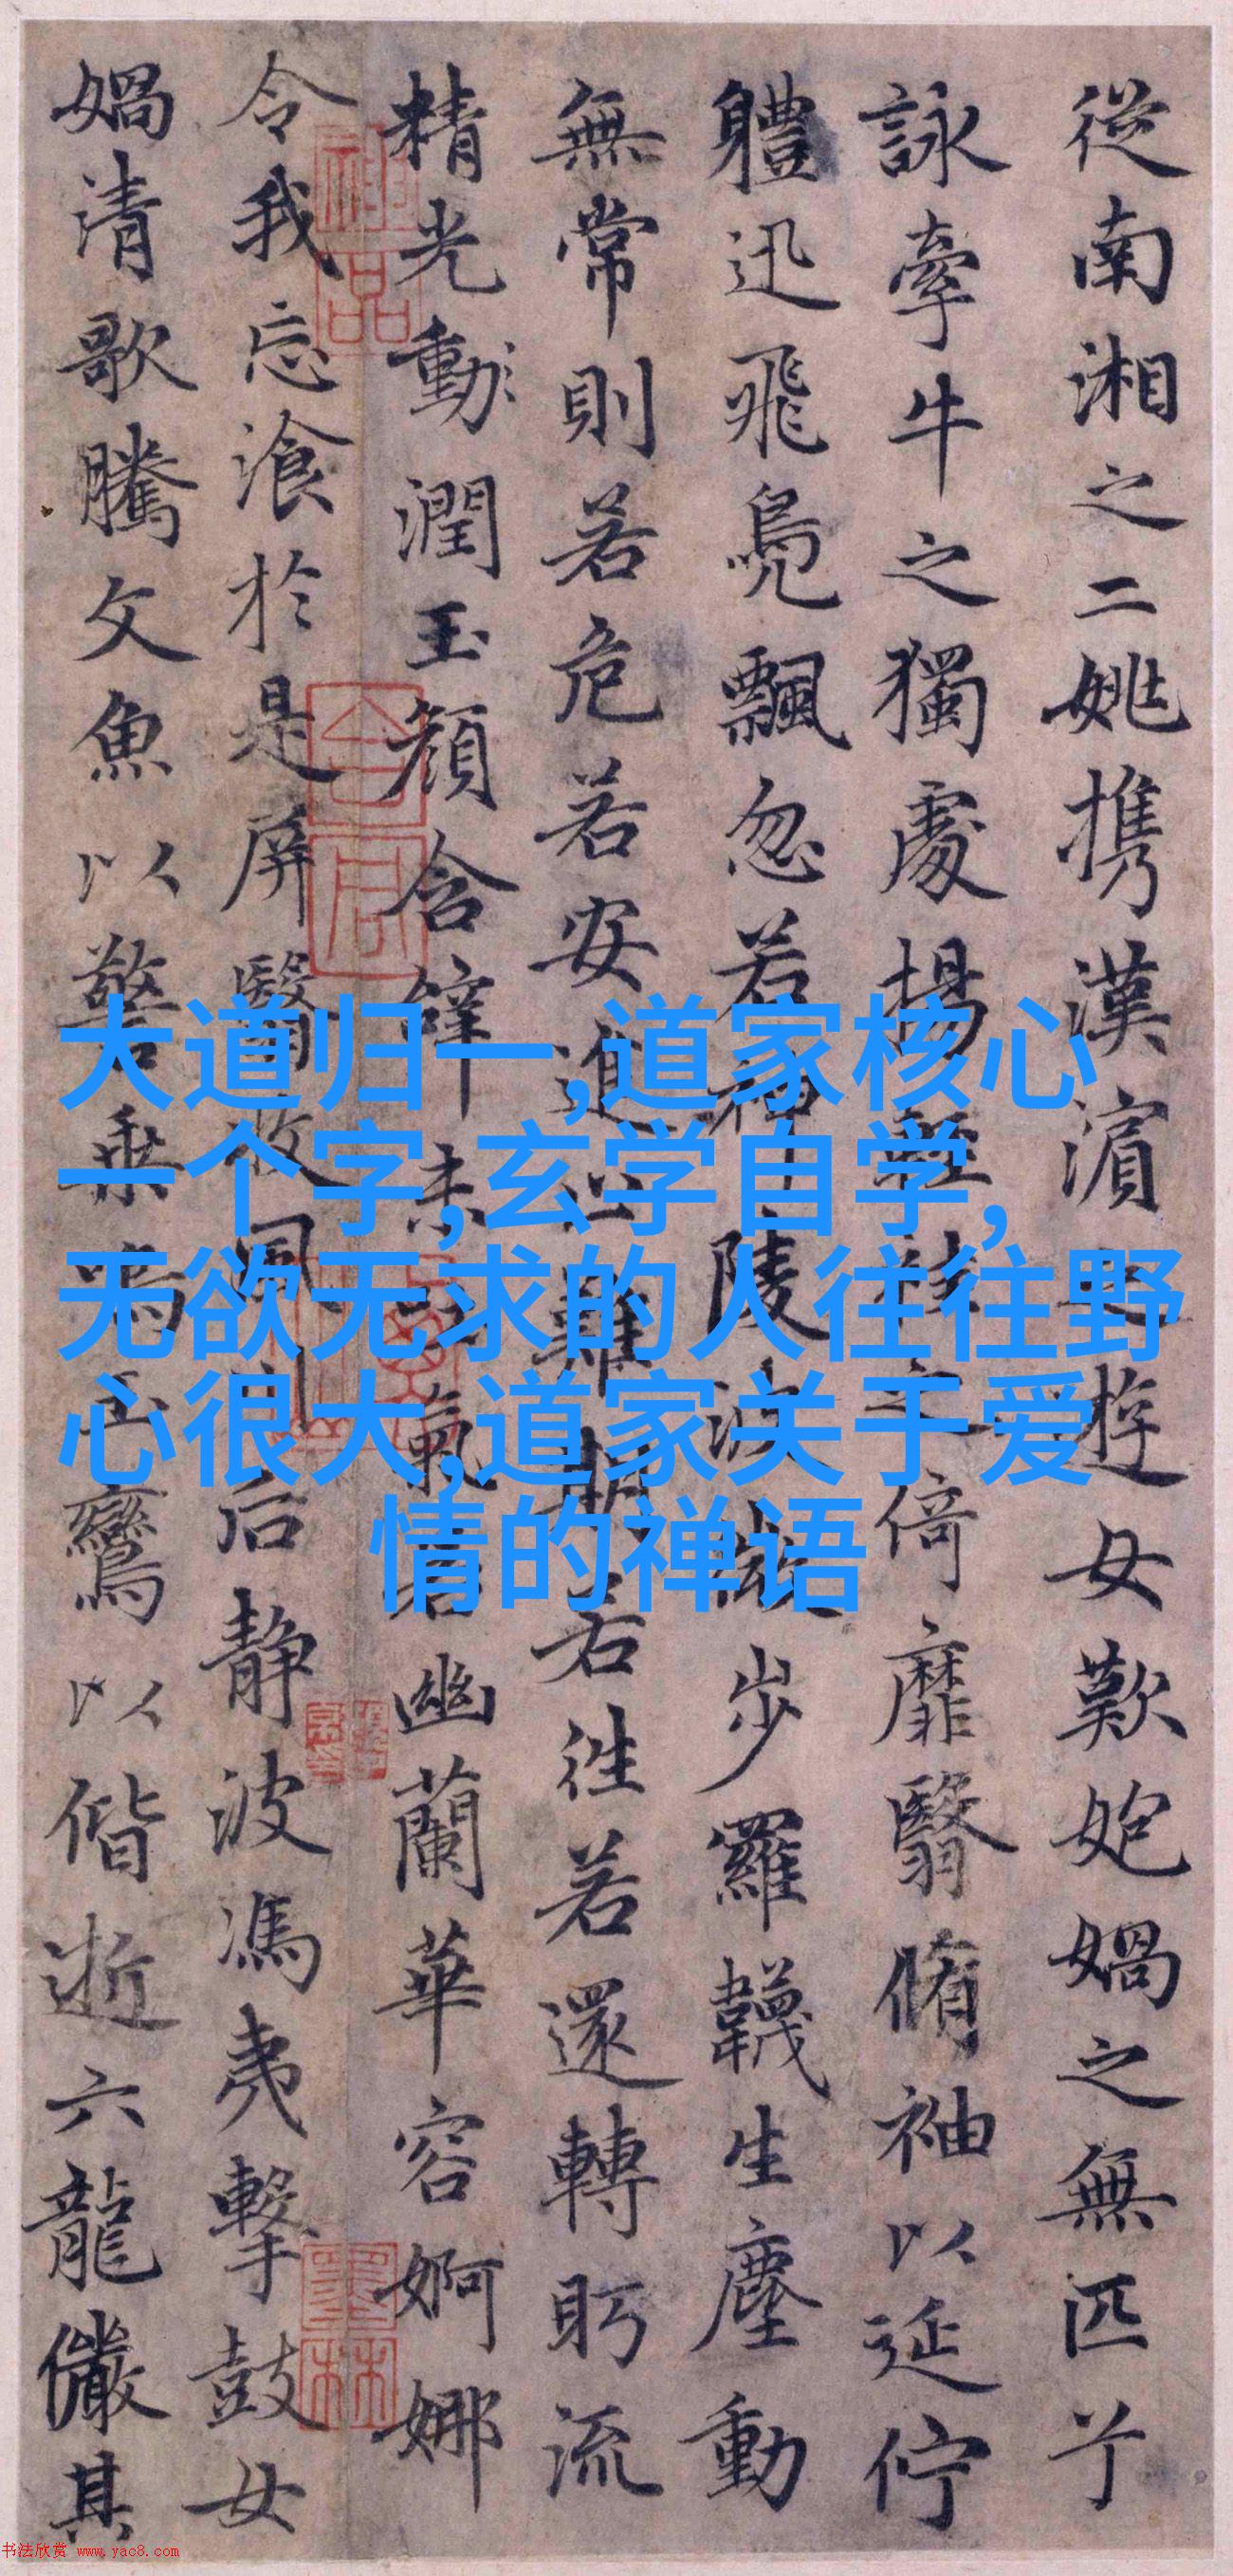 從南湘之二姚攜漢濱之遊女歎媧之無匹兮
詠牽牛之獨處揚輕袿之倚靡翳脩袖以延佇
體迅飛鳧飄忽若神陵波微步羅韈生塵動
無常則若危若安進止難期若往若還轉眄流
精光動潤玉顏含辭未吐氣若幽蘭華容婀娜
令我忘飡於是屏翳收風川后静波馮夷擊鼓女
媧清歌騰文魚以警乘鳴玉鸞以偕逝六龍儼其
大道归一,道家核心
一个字,玄学自学,
无欲无求的人往往野
心很大,道家关于爱
情的禅语
神品
墨林
书法欣赏 www.yac8.com